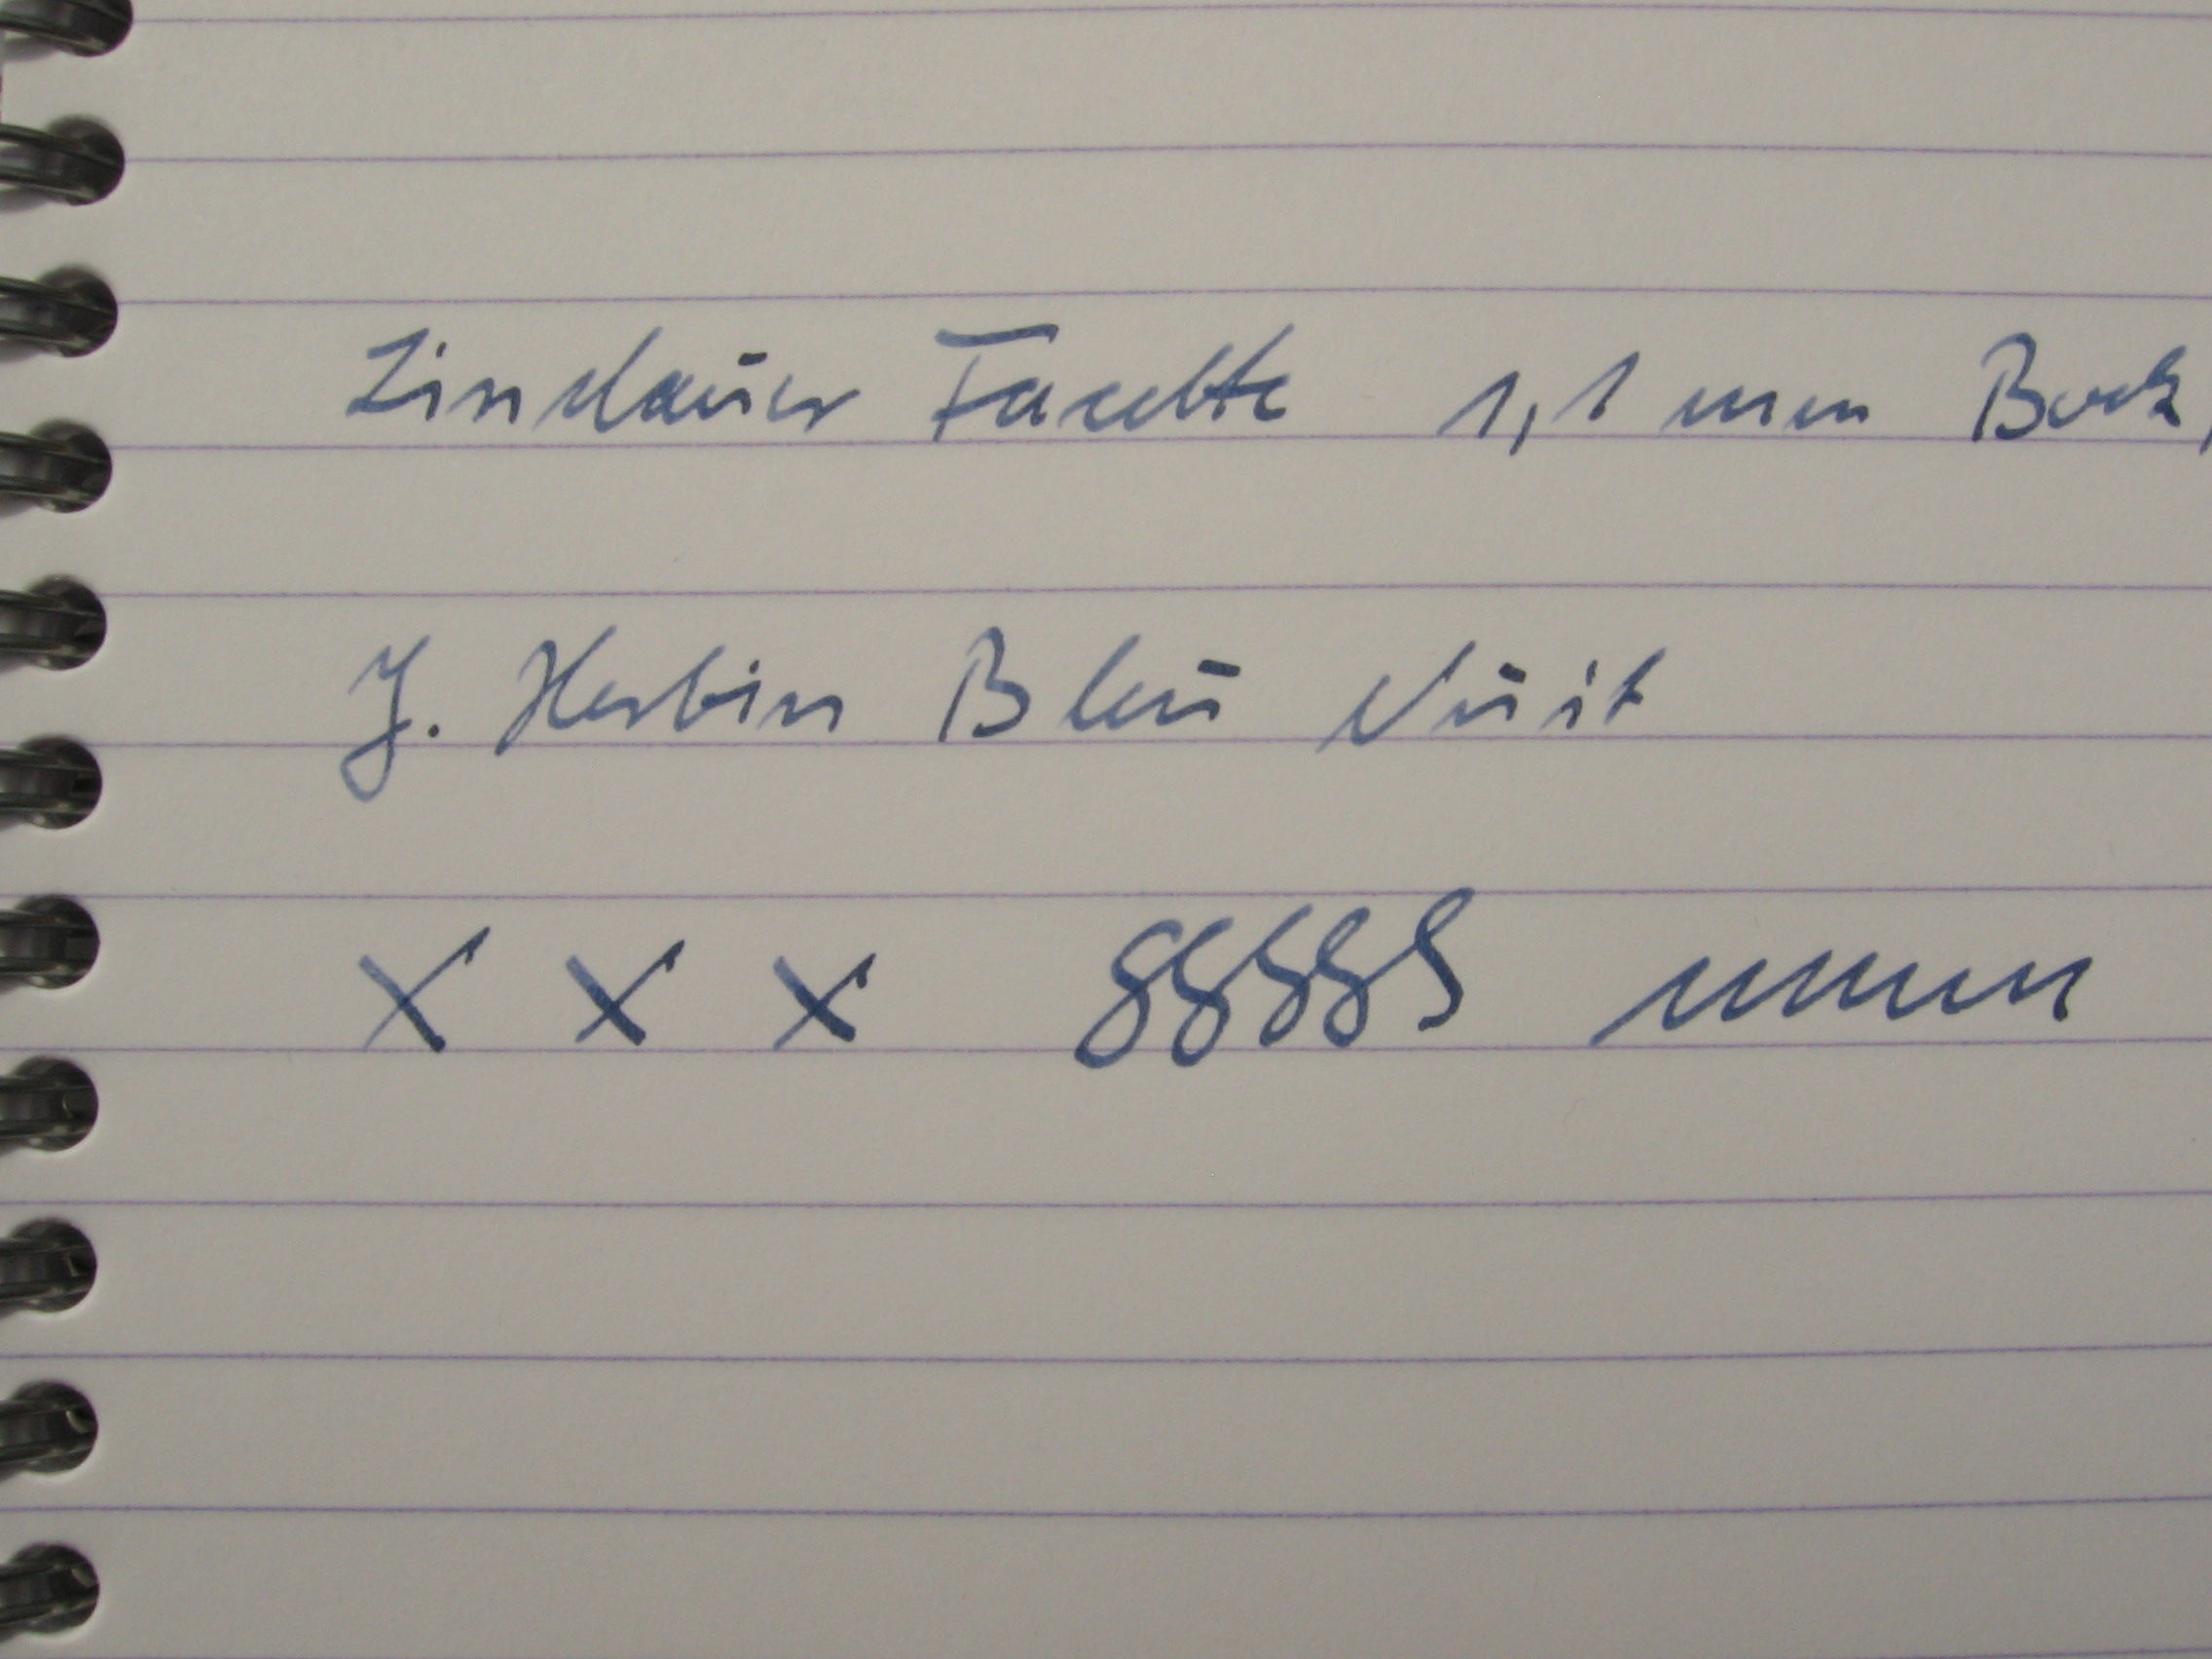 Lindauer Facette 1,1 mm Bock,
J. Herbin Bleu Nuit
x x x